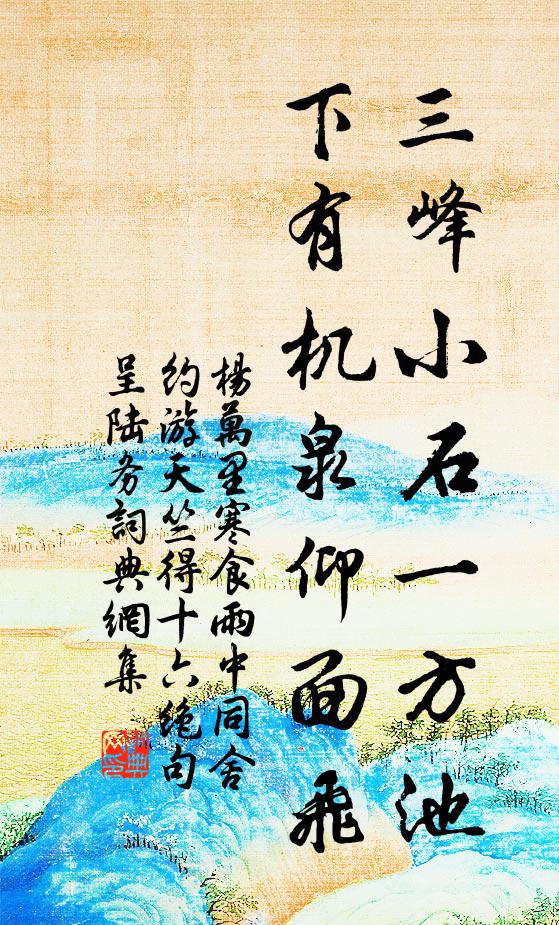 三峰小石一方池
下有机泉仰面飛
楊萬里寒食雨中同舍
約游天竺得十六絶句
呈陆务詞典網集